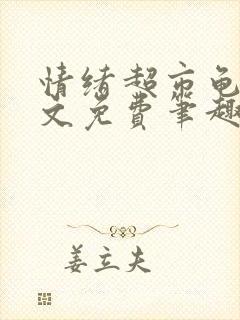 情绪超市龟
文免费笔趣
姜立夫